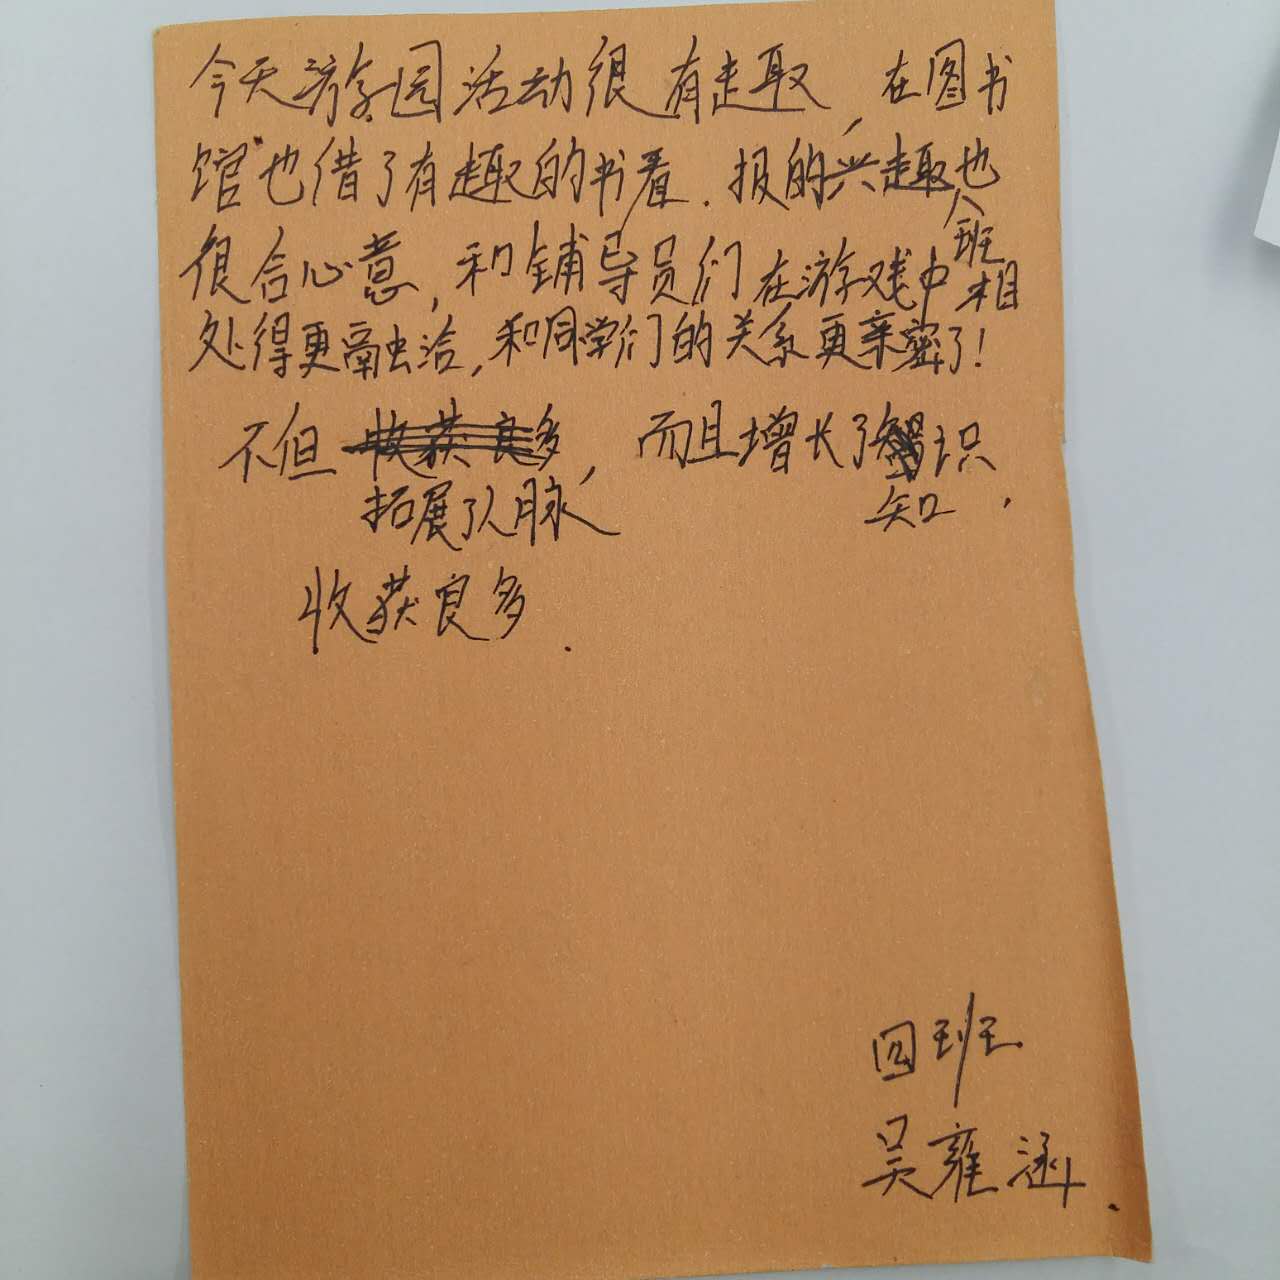 今天游园活动很有趣，在图书
馆也借了有趣的书看.报的兴趣
班也
很合心意,和辅导员们在游戏中相
处得更融洽,和同学们的关系更亲密了!
不但拓展了人脉,而且增长了知识,
收获良多.
四班
吴雍涵.